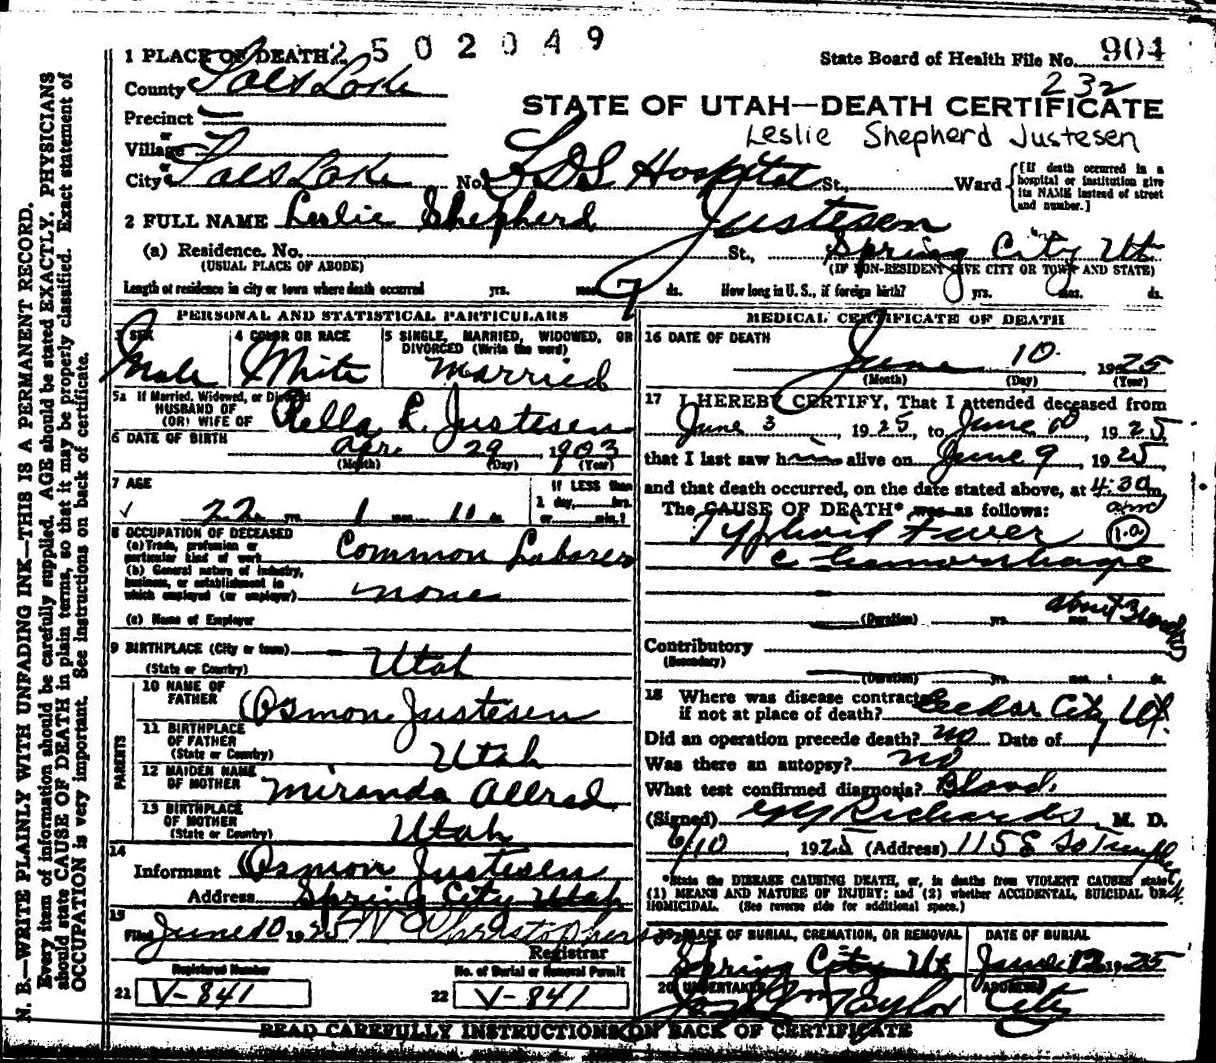 2502049
1 PLACE OF DEATH
State Board of Health File No. 904
232
County Salt Lake
STATE OF UTAH—DEATH CERTIFICATE
Precinct
Leslie Shepherd Justesen
or
Village
or
City Salt Lake No. L.D.S. Hospital St., Ward
[If death occurred in a hospital or institution give its NAME instead of street and number.]
2 FULL NAME Leslie Shepherd Justesen
(a) Residence. No. St., Spring City Ut
(USUAL PLACE OF ABODE) (IF NON-RESIDENT GIVE CITY OR TOWN AND STATE)
Length of residence in city or town where death occurred yrs. mos. 7 ds. How long in U. S., if foreign birth? yrs. mos. ds.
PERSONAL AND STATISTICAL PARTICULARS
3 SEX
Male
4 COLOR OR RACE
White
5 SINGLE, MARRIED, WIDOWED, OR DIVORCED (Write the word)
Married
5a If Married, Widowed, or Divorced
HUSBAND OF
(OR) WIFE OF Rella L. Justesen
6 DATE OF BIRTH Apr. 29 1903
(Month) (Day) (Year)
7 AGE
22 yrs. 1 mos. 11 ds.
If LESS than
1 day, hrs.
or min.?
8 OCCUPATION OF DECEASED
(a) Trade, profession or
particular kind of work Common Laborer
(b) General nature of industry,
business, or establishment in
which employed (or employer) none
(c) Name of Employer
9 BIRTHPLACE (City or town)
(State or Country) Utah
PARENTS
10 NAME OF
FATHER Osmon Justesen
11 BIRTHPLACE
OF FATHER
(State or Country) Utah
12 MAIDEN NAME
OF MOTHER Miranda Allred
13 BIRTHPLACE
OF MOTHER
(State or Country) Utah
14
Informant Osmon Justesen
Address Spring City Utah
15
Filed June 10 1925 Christopherson
Registrar
Registered Number
No. of Burial or Removal Permit
21 V-841
22 V-841
MEDICAL CERTIFICATE OF DEATH
16 DATE OF DEATH
June 10 1925
(Month) (Day) (Year)
17 I HEREBY CERTIFY, That I attended deceased from
June 3 1925, to June 10, 1925
that I last saw him alive on June 9, 1925,
and that death occurred, on the date stated above, at 4:30 am
The CAUSE OF DEATH* was as follows:
Typhoid Fever 1.a
c hemorrhage
about 3 weeks
(Duration) yrs. mos.
Contributory
(Secondary)
(Duration) yrs. mos. ds.
18 Where was disease contracted
if not at place of death? Cedar City Ut.
Did an operation precede death? no Date of
Was there an autopsy? no
What test confirmed diagnosis? Blood.
(Signed) Richards, M. D.
6/10 1925 (Address) 115 E So Temple
*State the DISEASE CAUSING DEATH, or, in deaths from VIOLENT CAUSES state
(1) MEANS AND NATURE OF INJURY; and (2) whether ACCIDENTAL, SUICIDAL OR
HOMICIDAL. (See reverse side for additional space.)
19 PLACE OF BURIAL, CREMATION, OR REMOVAL
Spring City Ut
DATE OF BURIAL
June 12 1925
20 UNDERTAKER
Taylor
ADDRESS
City
READ CAREFULLY INSTRUCTIONS ON BACK OF CERTIFICATE
N. B.—WRITE PLAINLY WITH UNFADING INK—THIS IS A PERMANENT RECORD.
Every item of information should be carefully supplied. AGE should be stated EXACTLY. PHYSICIANS
should state CAUSE OF DEATH in plain terms, so that it may be properly classified. Exact statement of
OCCUPATION is very important. See instructions on back of certificate.